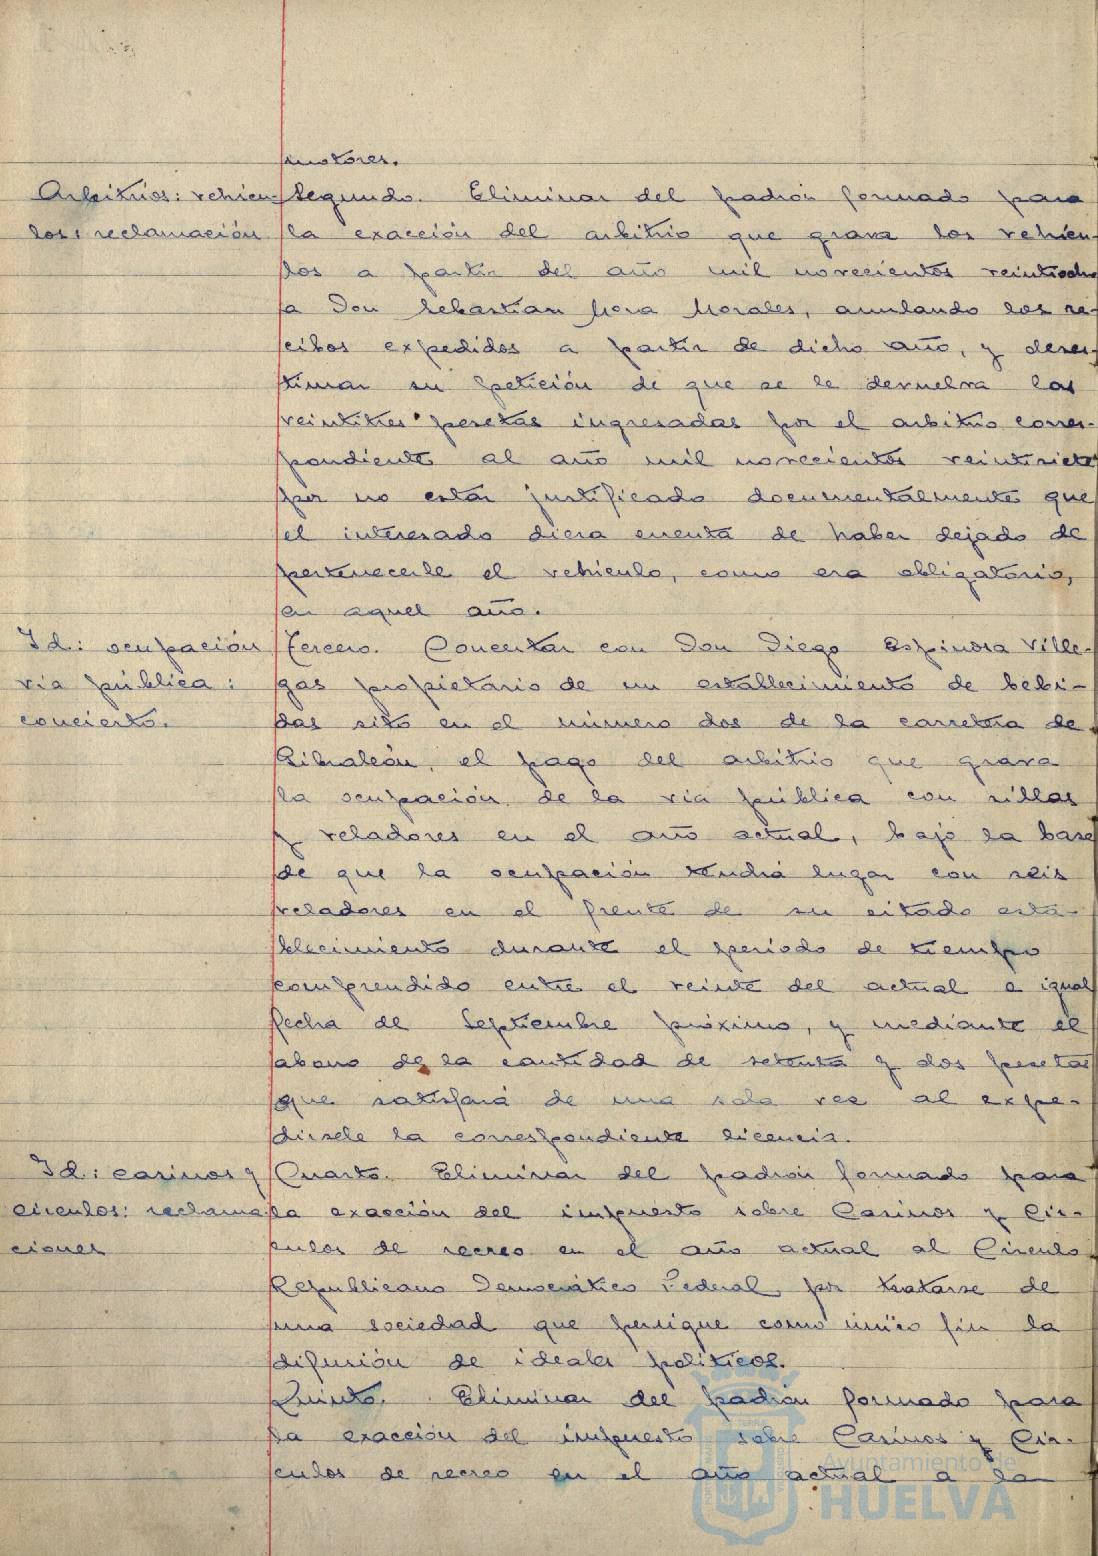 motores.
Arbitrios: vehícu-
los: reclamación
Segundo. Eliminar del padrón formado para
la exacción del arbitrio que grava los vehícu-
los a partir del año mil novecientos veintiocho
a Don Sebastián Mora Morales, anulando los re-
cibos expedidos a partir de dicho año, y deses-
timar su petición de que se le devuelva las
veintitres pesetas ingresadas por el arbitrio corres-
pondiente al año mil novecientos veintisiete
por no estar justificado documentalmente que
el interesado diera cuenta de haber dejado de
pertenecerle el vehículo, como era obligatorio,
en aquel año.
Id: ocupación
vía pública:
concierto.
Tercero. Concertar con Don Diego Espinosa Ville-
gas propietario de un establecimiento de bebi-
das sito en el número dos de la carretera de
Gibraleón, el pago del arbitrio que grava
la ocupación de la vía pública con sillas
y veladores en el año actual, bajo la base
de que la ocupación tendrá lugar con seis
veladores en el frente de su citado esta-
blecimiento durante el período de tiempo
comprendido entre el veinte del actual e igual
fecha de Septiembre próximo, y mediante el
abono de la cantidad de setenta y dos pesetas
que satisfará de una sola vez al expe-
dirsele la correspondiente licencia.
Id: casinos y
círculos: reclama-
ciones
Cuarto. Eliminar del padrón formado para
la exacción del impuesto sobre Casinos y Cír-
culos de recreo en el año actual al Círculo
Republicano Democrático Federal, por tratarse de
una sociedad que persigue como único fin la
difusión de ideales políticos.
Quinto. Eliminar del padrón formado para
la exacción del impuesto sobre Casinos y Cír-
culos de recreo en el año actual a la
Ayuntamiento de
HUELVA